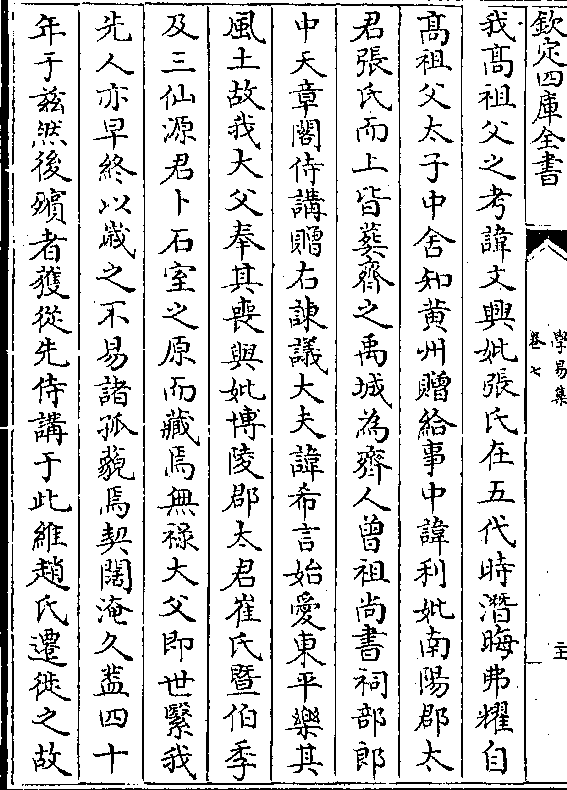 欽定四庫全書
學易集
卷七
二十
我髙祖父之考諱文興妣張氏在五代時潛晦弗耀自
髙祖父太子中舍知黄州贈給事中諱利妣南陽郡太
君張氏而上皆葬齊之禹城為齊人曾祖尚書祠部郎
中天章閣侍講贈右諫議大夫諱希言始愛東平樂其
風土故我大父奉其喪與妣博陵郡太君崔氏暨伯季
及三仙源君卜石室之原而藏焉無禄大父即世繄我
先人亦早終以歲之不易諸孤藐焉契闊淹久葢四十
年于兹然後殯者獲從先侍講于此維趙氏遷徙之故